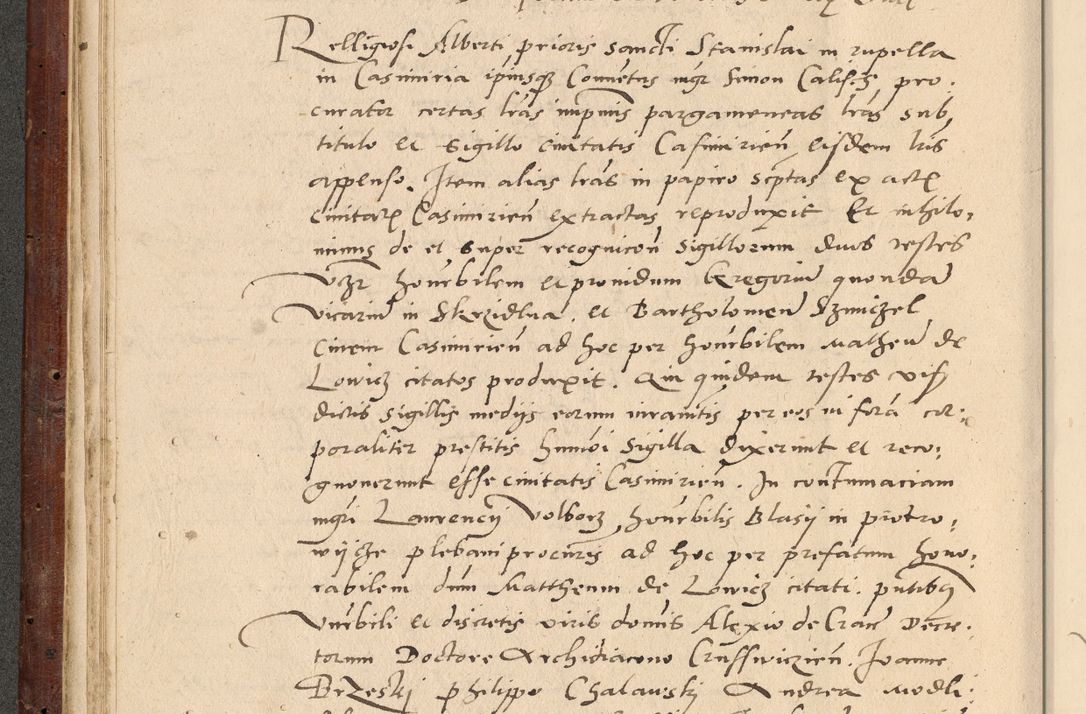 Relligiosi Alberti prioris sancti Stanislai in rupella
in Casimiria ipiusq3 Conuetus mgr Simon Calisz pro.
curator certas lras inpmis pargameneas lras sub
titulo et sigillo ciuitatis Casimirien eisdem lris
appenso. Item alias lras in papiro scptas ex actis
ciuitatis Casimirien extractas reproduxit Et nihilo,
minus de et super recognicon sigillorum duos testes
vz honorbilem et prouidum Gregoriu quonda
vicariu in Skrzidlna. et Bartholomeu Szmiczel
Ciuem Casimirien ad hoc per honorbilem Matheu de
Lowicz citatos produxit. Qui quidem testes visis
dictis sigillis medys eorum iuramtis per eos in fora cor,
poraliter prestitis humoi sigilla dixerunt et reco,
gnouerunt esse ciuitatis Casimirien. In contumaciam
mgri Laurency Volborz honorbilis Blasy in piotro,
wycze plebani procuris ad hoc per prefatum hono,
rabilem dnm Mattheum de Lowicz citati. pntibus
Vnrbili et discretis viris domis Alexio de Crac Decre,
torum Doctore Archidiacono Crussuiczien. Joanne
Brzeskj Philippo Chalauskj Andrea Modli,